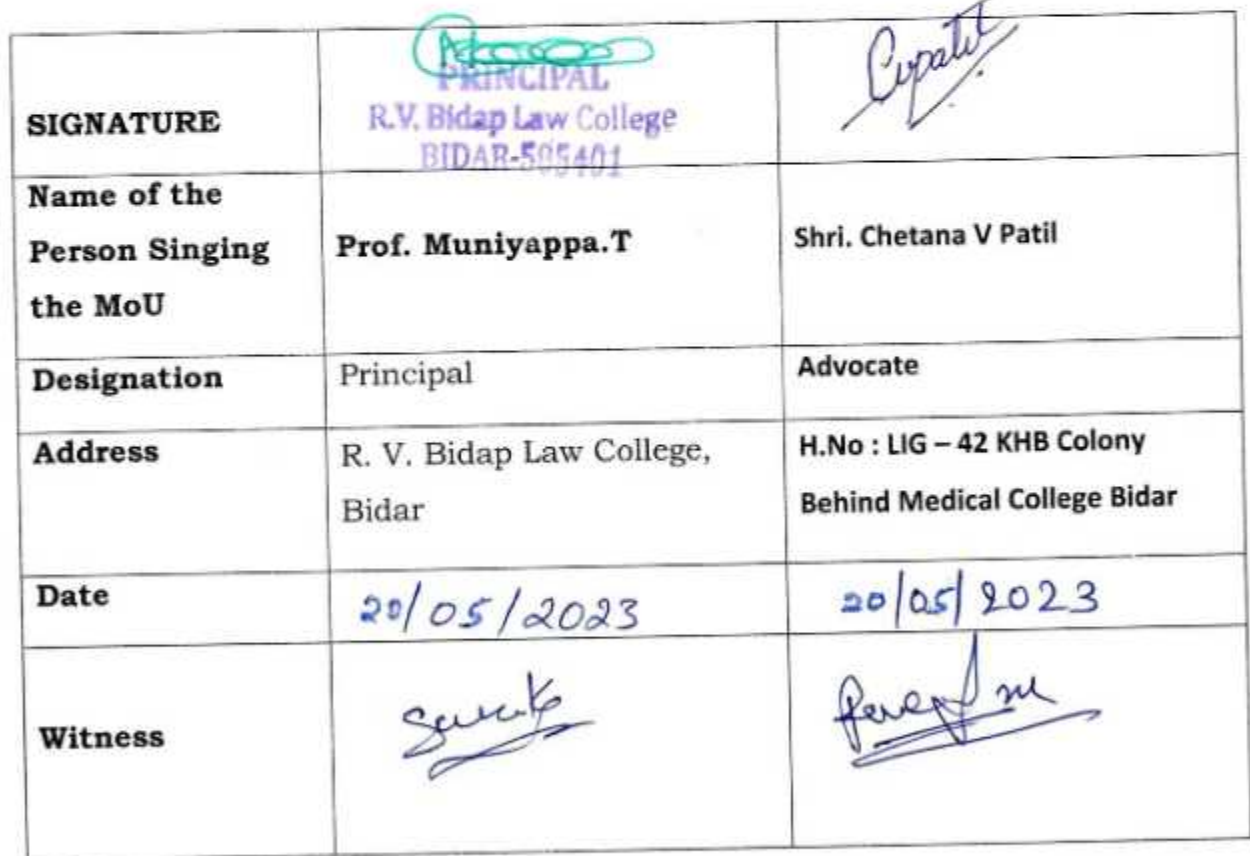 SIGNATURE
PRINCIPAL
R.V. Bidap Law College
BIDAR-585401
Cvpatil
Name of the
Person Singing
the MoU
Prof. Muniyappa.T
Shri. Chetana V Patil
Designation
Principal
Advocate
Address
R. V. Bidap Law College,
Bidar
H.No : LIG – 42 KHB Colony
Behind Medical College Bidar
Date
20/05/2023
20/05/2023
Witness